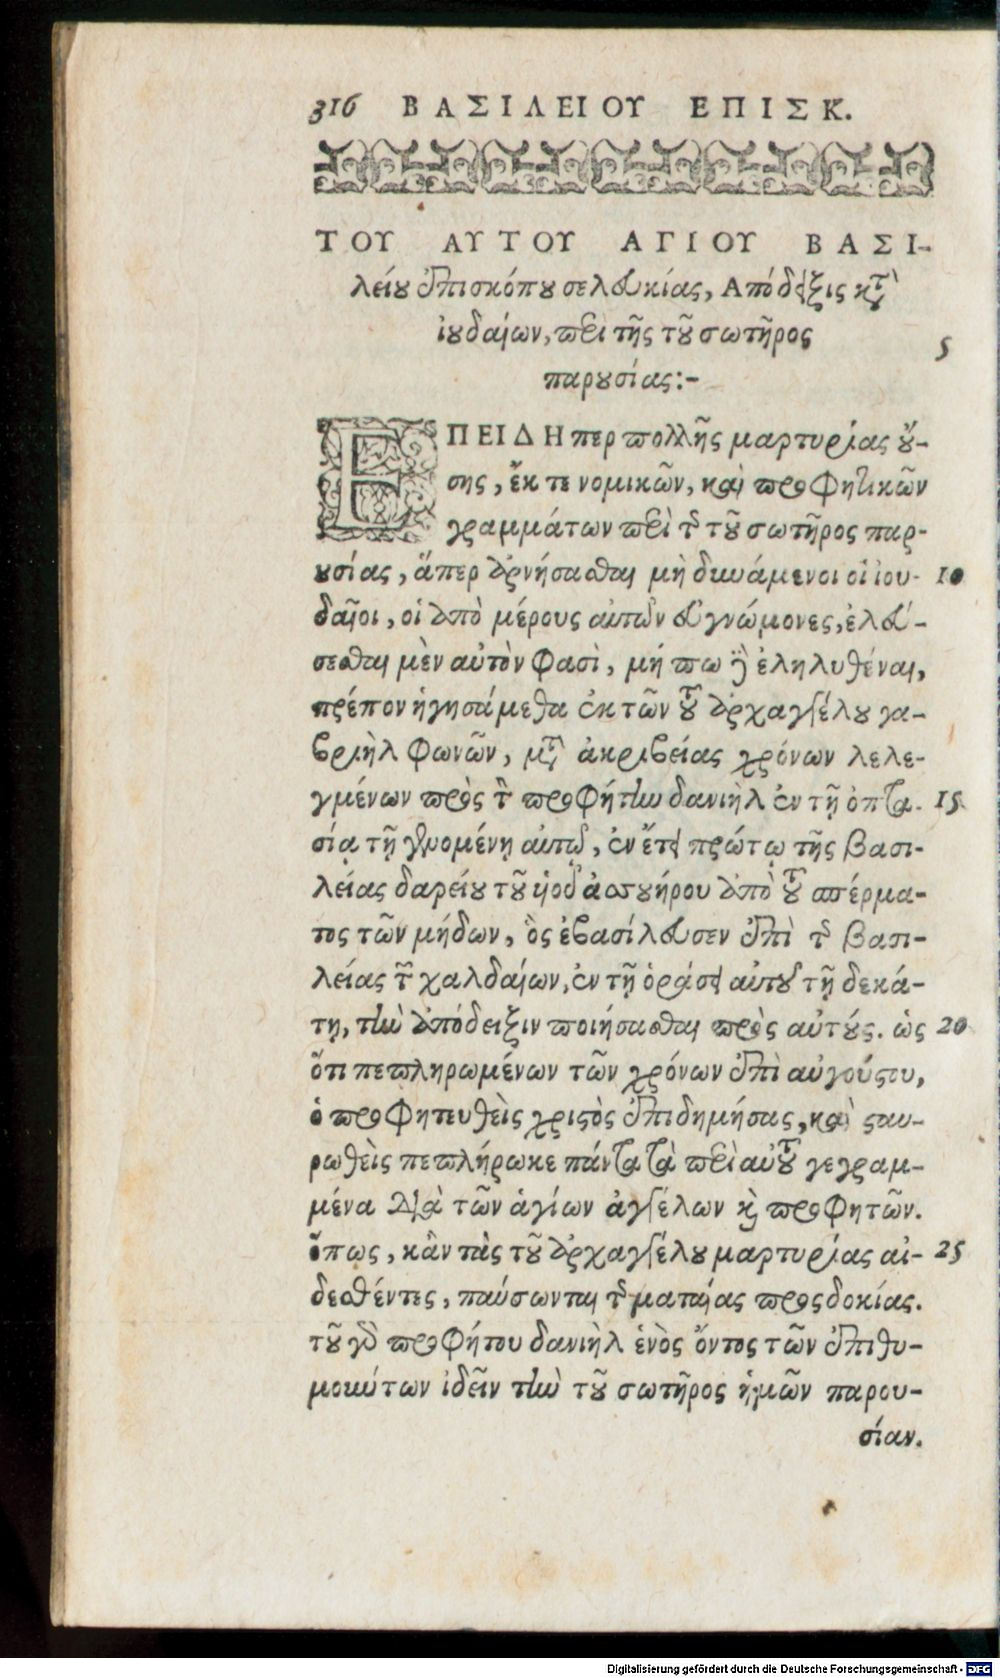 316 ΒΑΣΙΛΕΙΟΥ ΕΠΙΣΚ.
ΤΟΥ ΑΥΤΟΥ ΑΓΙΟΥ ΒΑΣΙ-
λείου ἐπισκόπου σελευκίας, Απόδειξις κατὰ
ἰουδαίων, περὶ τῆς τοῦ σωτῆρος 5
παρουσίας:-
ΕΠΕΙΔΗπερ πολλῆς μαρτυρίας οὔ-
σης, ἔκ τε νομικῶν, καὶ προφητικῶν
γραμμάτων περὶ τῆς τοῦ σωτῆρος παρ-
ουσίας, ἅπερ ἀρνήσασθαι μὴ δυνάμενοι οἱ ἰου- 10
δαῖοι, οἱ ἀπὸ μέρους αὐτῶν εὐγνώμονες, ἐλεύ-
σεσθαι μὲν αὐτὸν φασὶ, μή πω δὲ ἐληλυθέναι,
πρέπον ἡγησάμεθα ἐκ τῶν τοῦ ἀρχαγγέλου γα-
βριὴλ φωνῶν, μετὰ ἀκριβείας χρόνων λελε-
γμένων πρὸς τὸν προφήτην δανιὴλ ἐν τῇ ὀπτα- 15
σίᾳ τῇ γενομένῃ αὐτῷ, ἐν ἔτει πρώτῳ τῆς βασι-
λείας δαρείου τοῦ υἱοῦ ἀσουήρου ἀπὸ τοῦ σπέρμα-
τος τῶν μήδων, ὃς ἐβασίλευσεν ἐπὶ τῆς βασι-
λείας τῶν χαλδαίων, ἐν τῇ ὁράσει αὐτοῦ τῇ δεκά-
τῃ, τὴν ἀπόδειξιν ποιήσασθαι πρὸς αὐτούς. ὡς 20
ὅτι πεπληρωμένων τῶν χρόνων ἐπὶ αὐγούστου,
ὁ προφητευθεὶς χριστὸς ἐπιδημήσας, καὶ σταυ-
ρωθεὶς πεπλήρωκε πάντα τὰ περὶ αὐτοῦ γεγραμ-
μένα διὰ τῶν ἁγίων ἀγγέλων καὶ προφητῶν.
ὅπως, κἂν τὰς τοῦ ἀρχαγγέλου μαρτυρίας αἰ- 25
δεσθέντες, παύσωνται τῆς ματαίας προσδοκίας.
τοῦ γὰρ προφήτου δανιὴλ ἑνὸς ὄντος τῶν ἐπιθυ-
μούντων ἰδεῖν τὴν τοῦ σωτῆρος ἡμῶν παρου-
σίαν.
Digitalisierung gefördert durch die Deutsche Forschungsgemeinschaft - DFG